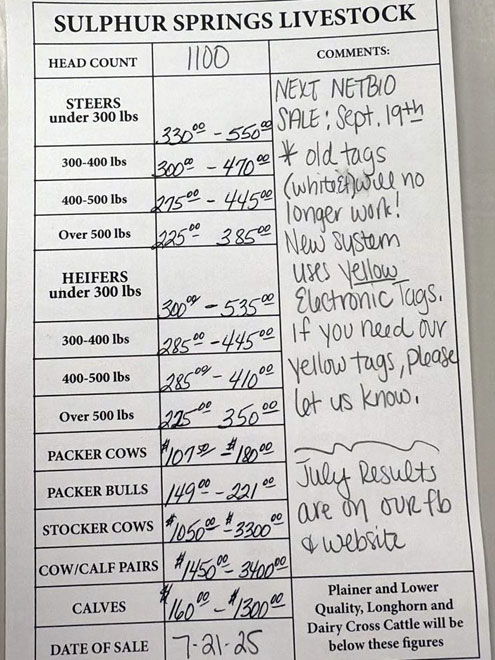 SULPHUR SPRINGS LIVESTOCK
HEAD COUNT 1100 COMMENTS:
STEERS
under 300 lbs 330.00 - 550.00
300-400 lbs 300.00 - 470.00
400-500 lbs 275.00 - 445.00
Over 500 lbs 225.00 385.00
HEIFERS
under 300 lbs 300.00 - 535.00
300-400 lbs 285.00 - 445.00
400-500 lbs 285.00 - 410.00
Over 500 lbs 225.00 350.00
PACKER COWS $107.50 - $180.00
PACKER BULLS 149.00 - 221.00
STOCKER COWS $1050.00 - $3300.00
COW/CALF PAIRS $1450.00 - 3400.00
CALVES $160.00 - $1300.00
DATE OF SALE 7-21-25
NEXT NETBIO
SALE: Sept. 19th
* old tags
will no
longer work!
New system
uses yellow
Electronic Tags.
If you need our
yellow tags, please
let us know.
July Results
are on our fb
& website
Plainer and Lower
Quality, Longhorn and
Dairy Cross Cattle will be
below these figures